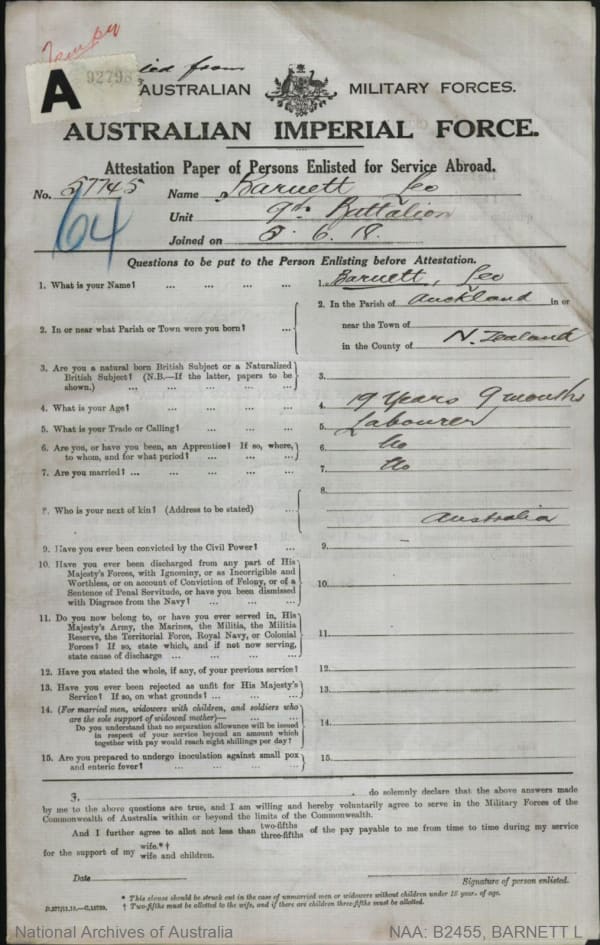 A 92798
AUSTRALIAN MILITARY FORCES.
AUSTRALIAN IMPERIAL FORCE.
Attestation Paper of Persons Enlisted for Service Abroad.
No. 57745 Name Barnett Leo
64 Unit 9th Battalion
Joined on 5.6.18.
Questions to be put to the Person Enlisting before Attestation.
1. What is your Name? ... ... ... ... 1. Barnett, Leo
2. In or near what Parish or Town were you born? ... 2. In the Parish of Auckland in or
near the Town of
in the County of N. Zealand
3. Are you a natural born British Subject or a Naturalized
British Subject? (N.B.—If the latter, papers to be
shown.) ... ... ... ... ... 3.
4. What is your Age? ... ... ... ... 4. 19 Years 9 months
5. What is your Trade or Calling? ... ... ... 5. Labourer
6. Are you, or have you been, an Apprentice? If so, where,
to whom, and for what period? ... ... ... 6. No
7. Are you married? ... ... ... ... 7. No
8. Who is your next of kin? (Address to be stated) ... 8.
Australia
9. Have you ever been convicted by the Civil Power? ... 9. –
10. Have you ever been discharged from any part of His
Majesty's Forces, with Ignominy, or as Incorrigible and
Worthless, or on account of Conviction of Felony, or of a
Sentence of Penal Servitude, or have you been dismissed
with Disgrace from the Navy? ... ... ... 10.
11. Do you now belong to, or have you ever served in, His
Majesty's Army, the Marines, the Militia, the Militia
Reserve, the Territorial Force, Royal Navy, or Colonial
Forces? If so, state which, and if not now serving,
state cause of discharge ... ... ... ... 11.
12. Have you stated the whole, if any, of your previous service? 12.
13. Have you ever been rejected as unfit for His Majesty's
Service? If so, on what grounds? ... ... ... 13.
14. (For married men, widowers with children, and soldiers who
are the sole support of widowed mother)— ... ...
Do you understand that no separation allowance will be issued
in respect of your service beyond an amount which
together with pay would reach eight shillings per day? 14.
15. Are you prepared to undergo inoculation against small pox
and enteric fever? ... ... ... ... 15.
I, do solemnly declare that the above answers made
by me to the above questions are true, and I am willing and hereby voluntarily agree to serve in the Military Forces of the
Commonwealth of Australia within or beyond the limits of the Commonwealth.
And I further agree to allot not less than two-fifths three-fifths of the pay payable to me from time to time during my service
for the support of my wife.*† wife and children.
Date
Signature of person enlisted.
* This clause should be struck out in the case of unmarried men or widowers without children under 18 years of age.
† Two-fifths must be allotted to the wife, and if there are children three-fifths must be allotted.
National Archives of Australia NAA: B2455, BARNETT L